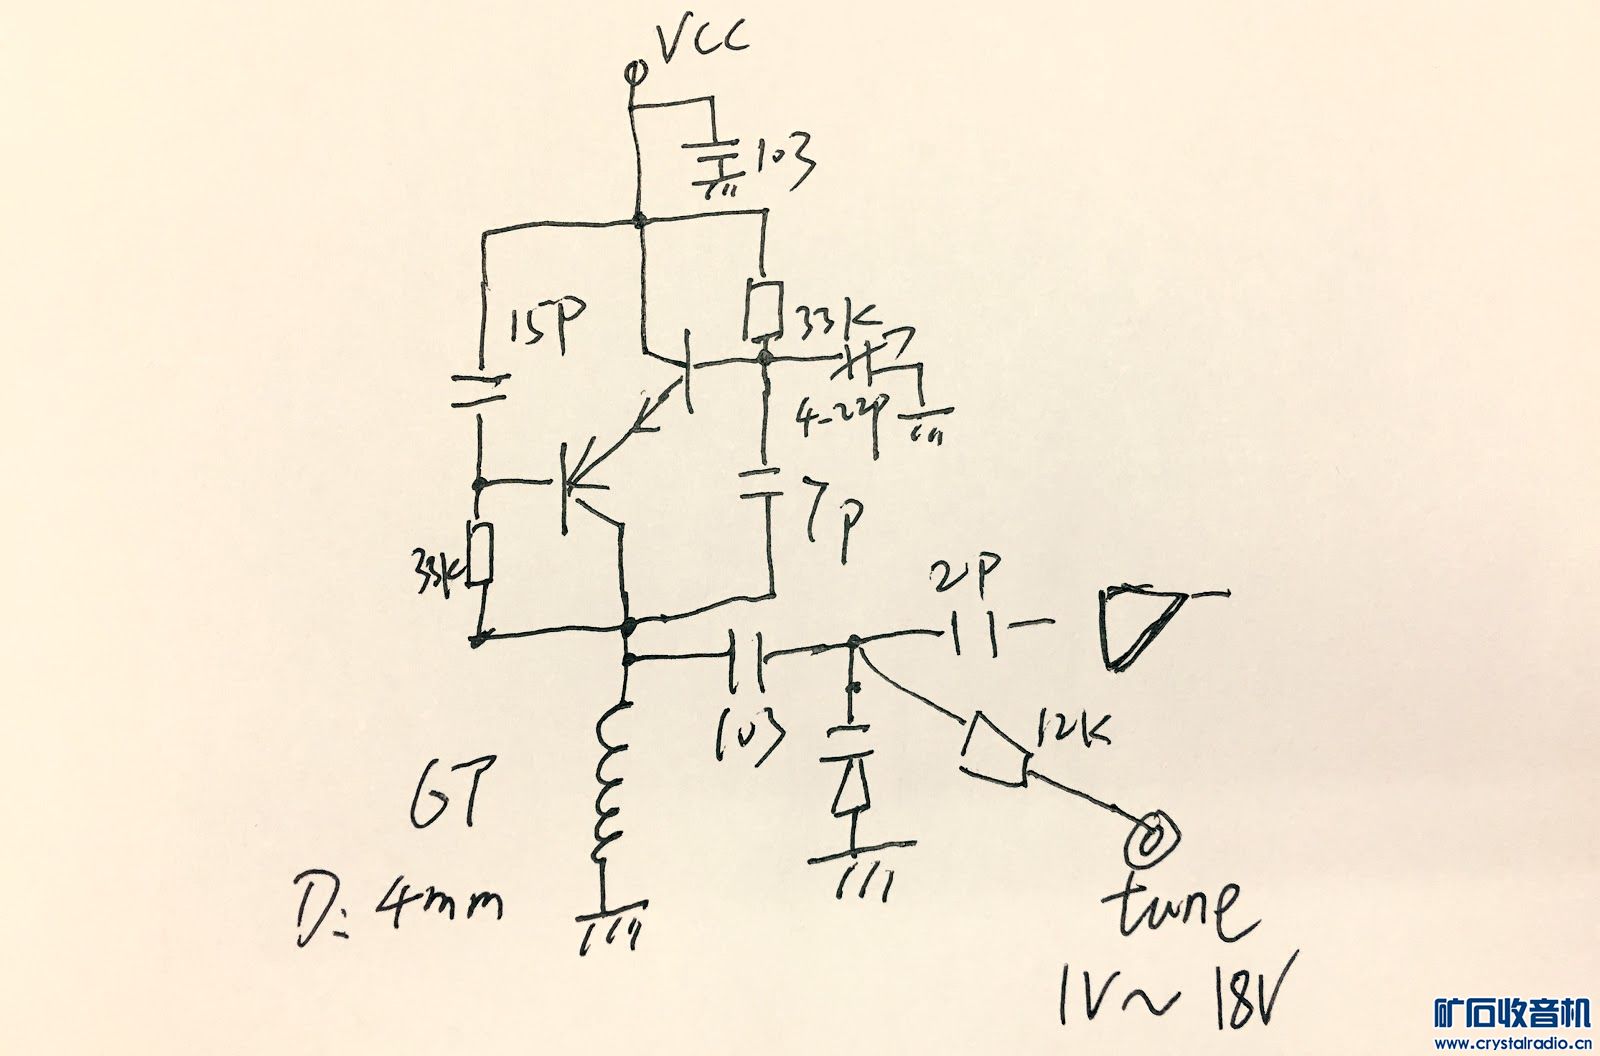 VCC
103
15P
33K
4-22P
7P
33K
2P
103
12K
6T
D: 4mm
tune
1V~18V
矿石收音机
www.crystalradio.cn